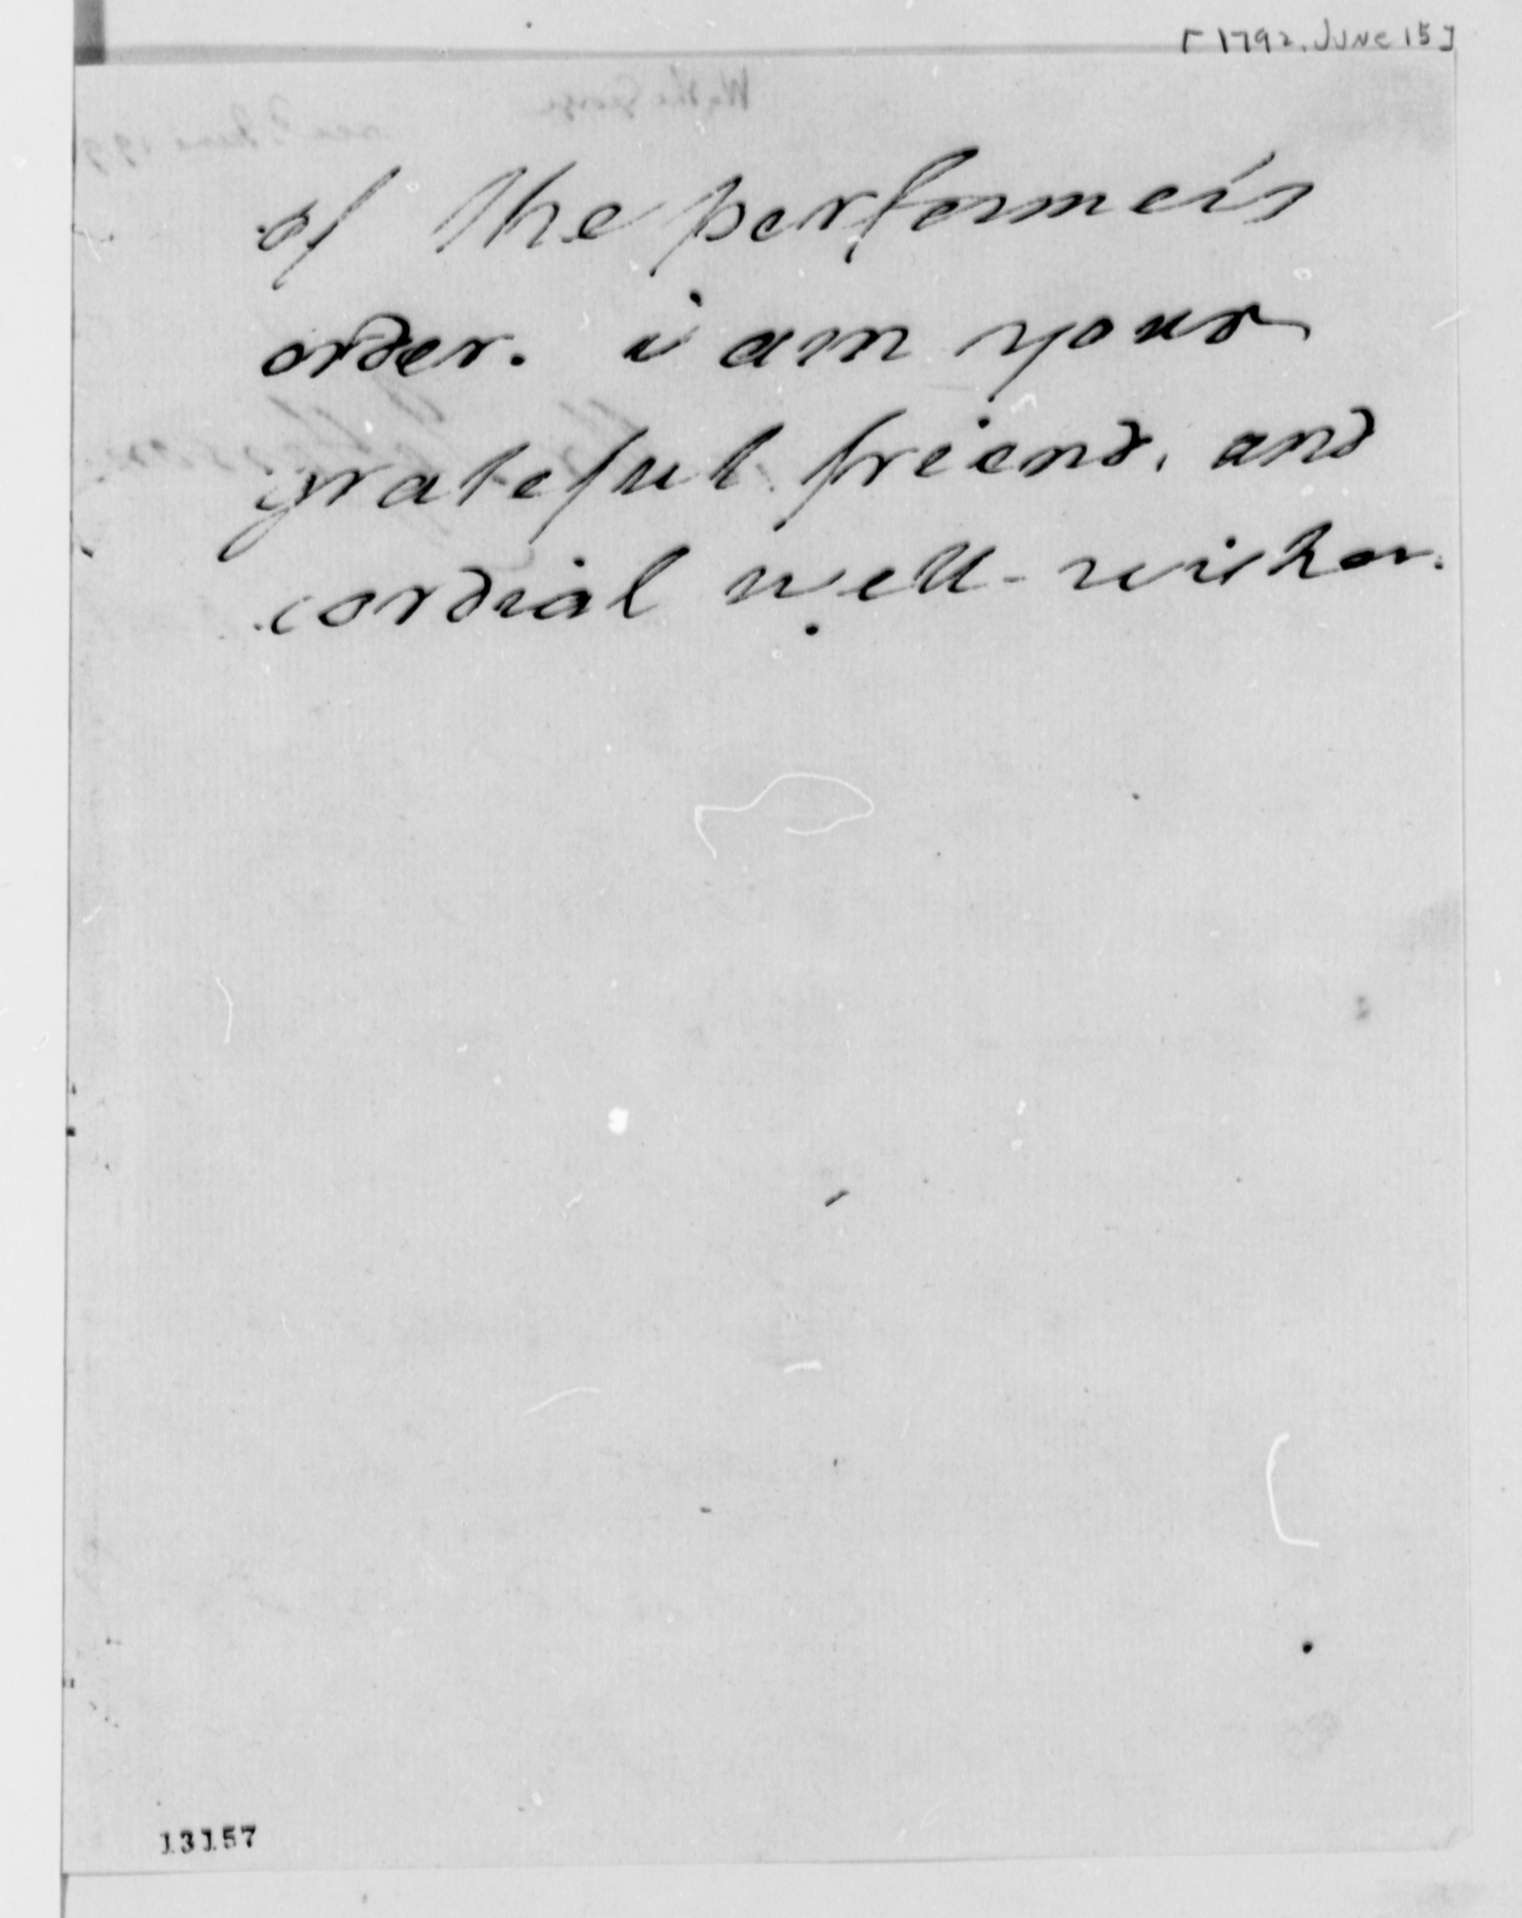 [1792. June 15]
of the performer's
order. i am your
grateful friend, and
cordial well-wisher.
13157